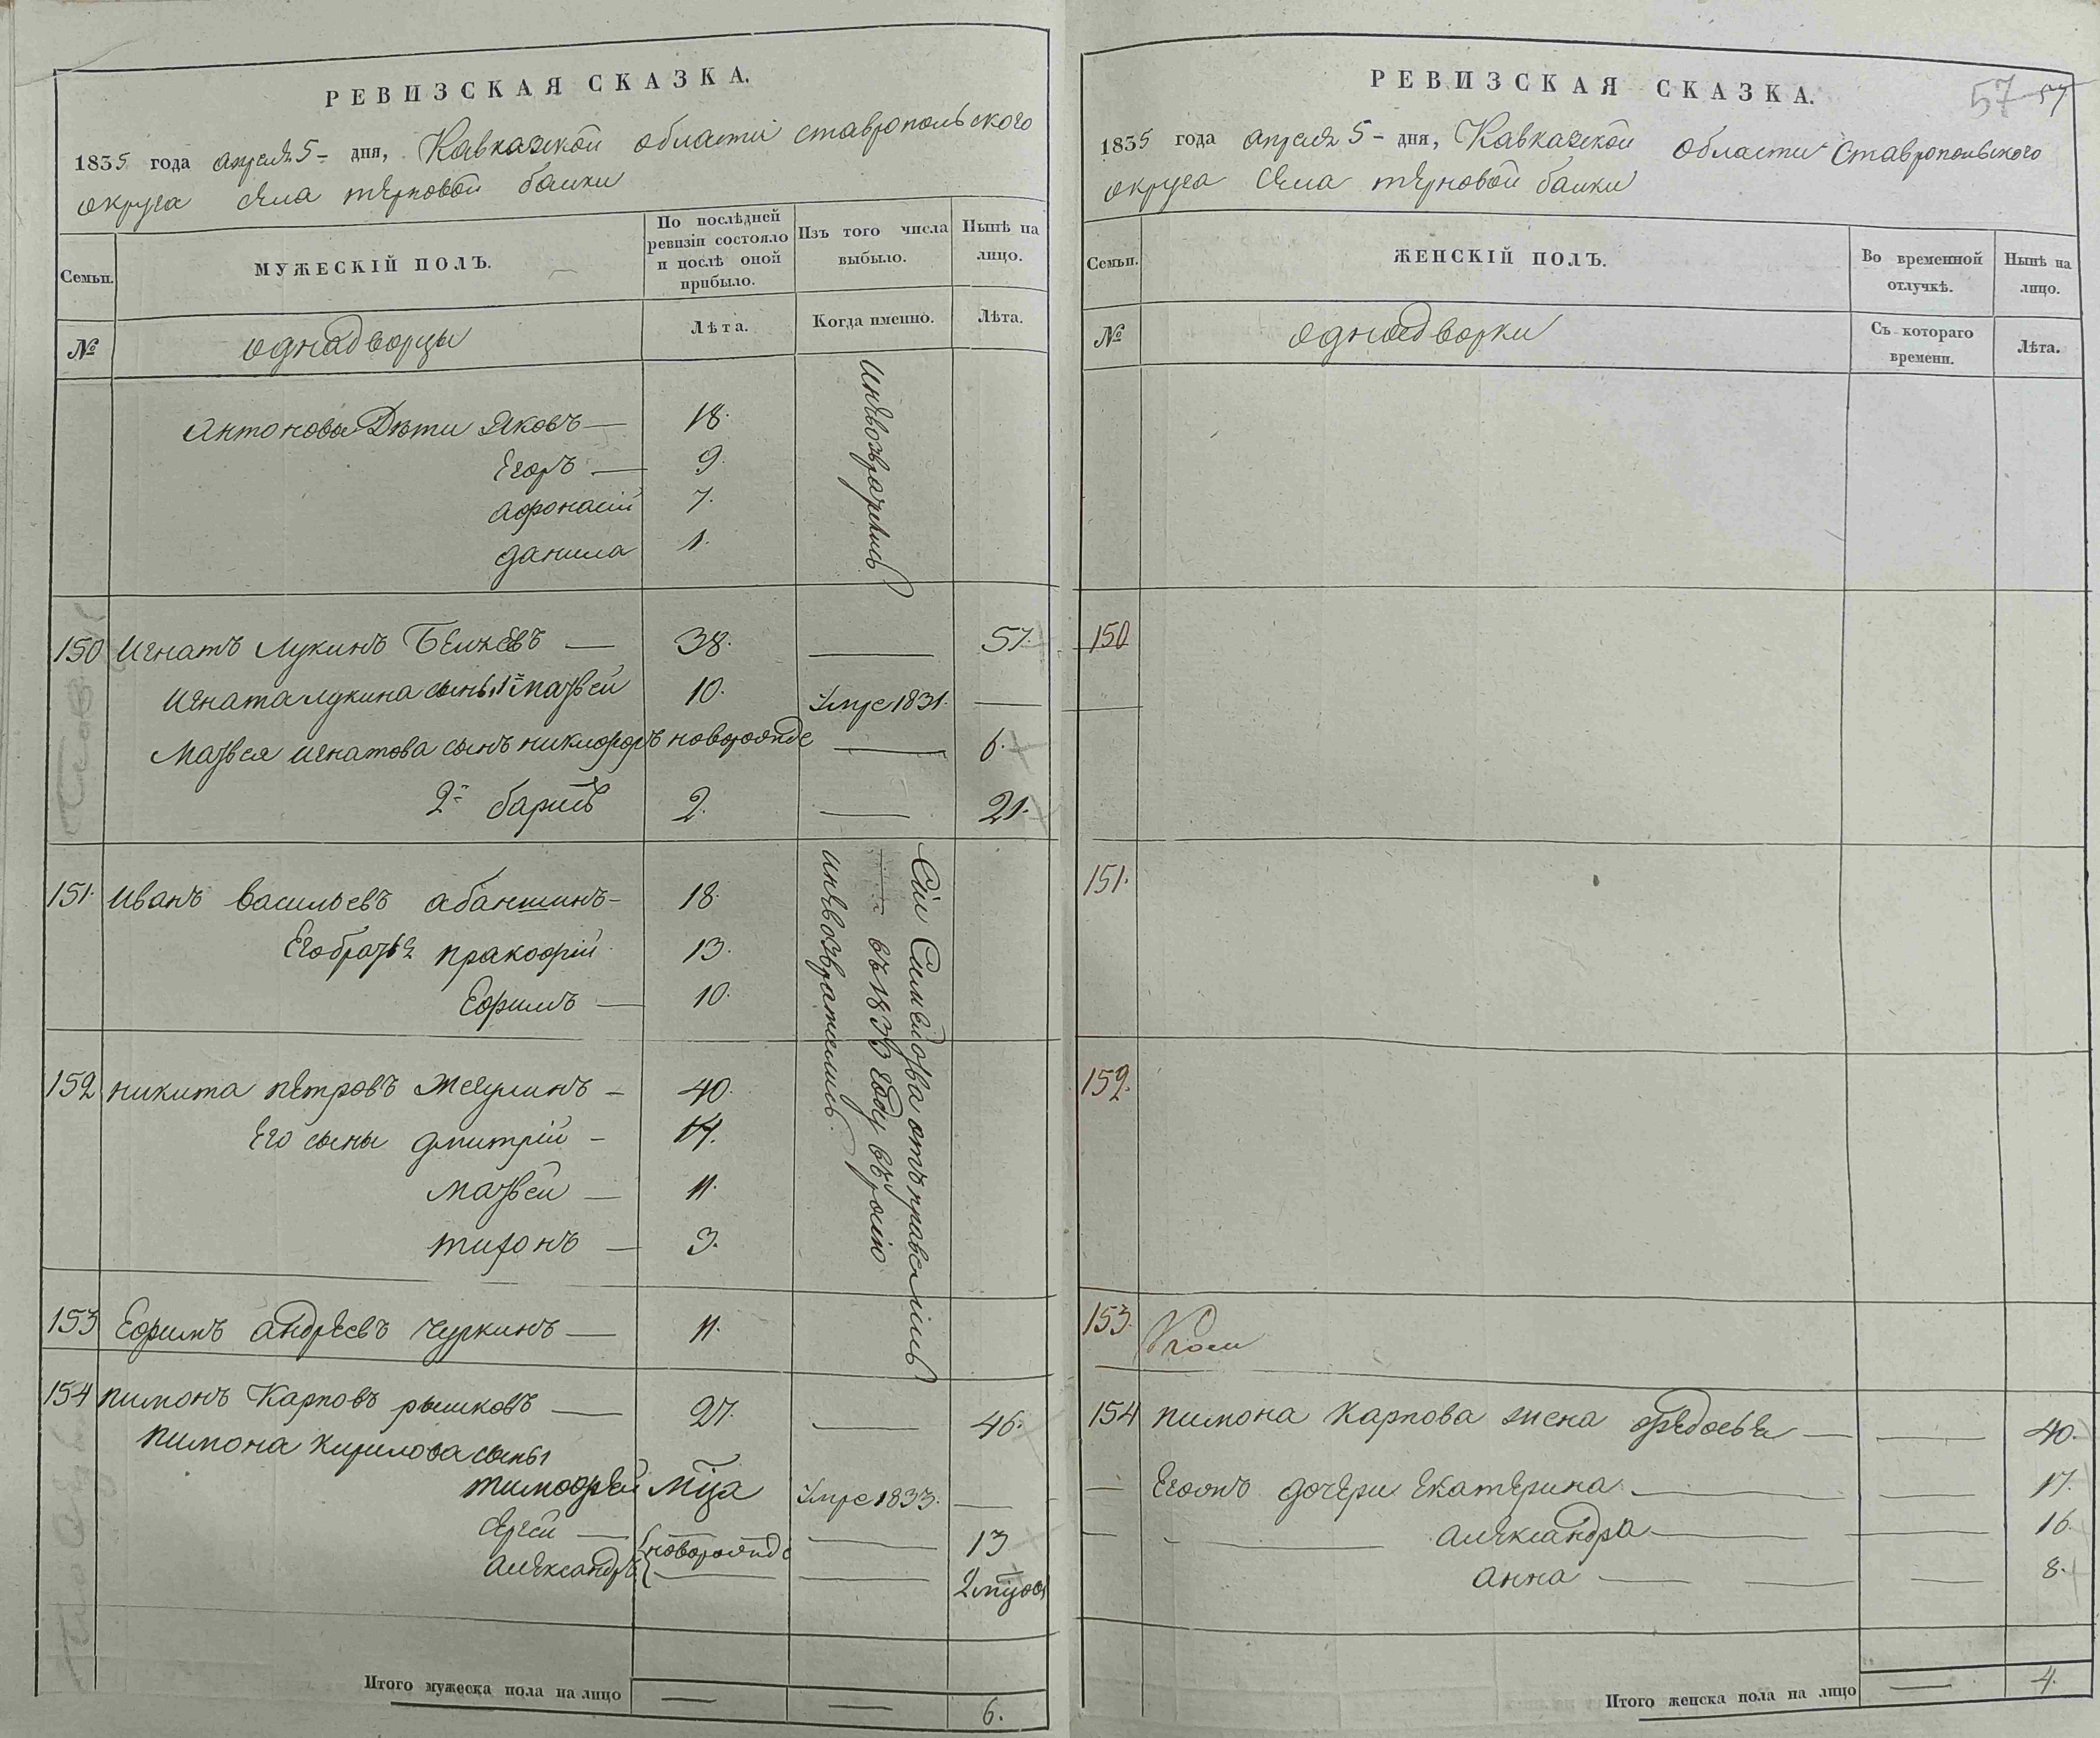 РЕВИЗСКАЯ СКАЗКА.
1835 года апреля 5 - дня, Кавказкой области ставропольского
округа села терновой балки
Семьи.
МУЖЕСКІЙ ПОЛЪ.
По послѣдней ревизіи состояло и послѣ оной прибыло.
Изъ того числа выбыло.
Нынѣ на лицо.
№
однадворцы
Лѣта.
Когда именно.
Лѣта.
Антоновы Дѣти Яковъ — 18.
Егоръ — 9.
Афонасій 7.
данила 1.
инѣвозвратились
150 Игнатъ Лукинъ Бѣляевъ — 38. — 57.
Игната лукина сыны 1й матвей 10. Умре 1831. —
Матвея игнатова сынъ никифоръ новорожде — 6.
2й барисъ 2. — 21.
151. Иванъ васильевъ абаншинъ - 18.
Его братья пракофій 13.
Ефимъ — 10.
152 никита петровъ Жегулинъ - 40.
Его сыны дмитрій - 14.
матвей — 11.
тихонъ — 3.
153 Ефимъ андреевъ чуркинъ — 11.
Сіи Симейства отъправились
въ 1833 году въ росію
инѣвозвратились.
154 пимонъ Карповъ рышковъ — 27. — 46.
пимона кирилова сыны
тимофей мца Умре 1833. —
Сергей — новорожде — 13
александръ — — 2 мцов
Итого мужеска пола на лицо — — 6.
РЕВИЗСКАЯ СКАЗКА.
57 57
1835 года апреля 5 - дня, Кавказкой области Ставропольского
округа села терновой балки
Семьи.
ЖЕНСКІЙ ПОЛЪ.
Во временной отлучкѣ.
Нынѣ на лицо.
№
однодворки
Съ котораго времени.
Лѣта.
150
151.
152.
153.
154 пимона карпова жена федосья — — 40.
— Егожъ дочери Екатерина — — 17.
— — александра — — 16.
анна — — — 8.
Итого женска пола на лицо — 4.